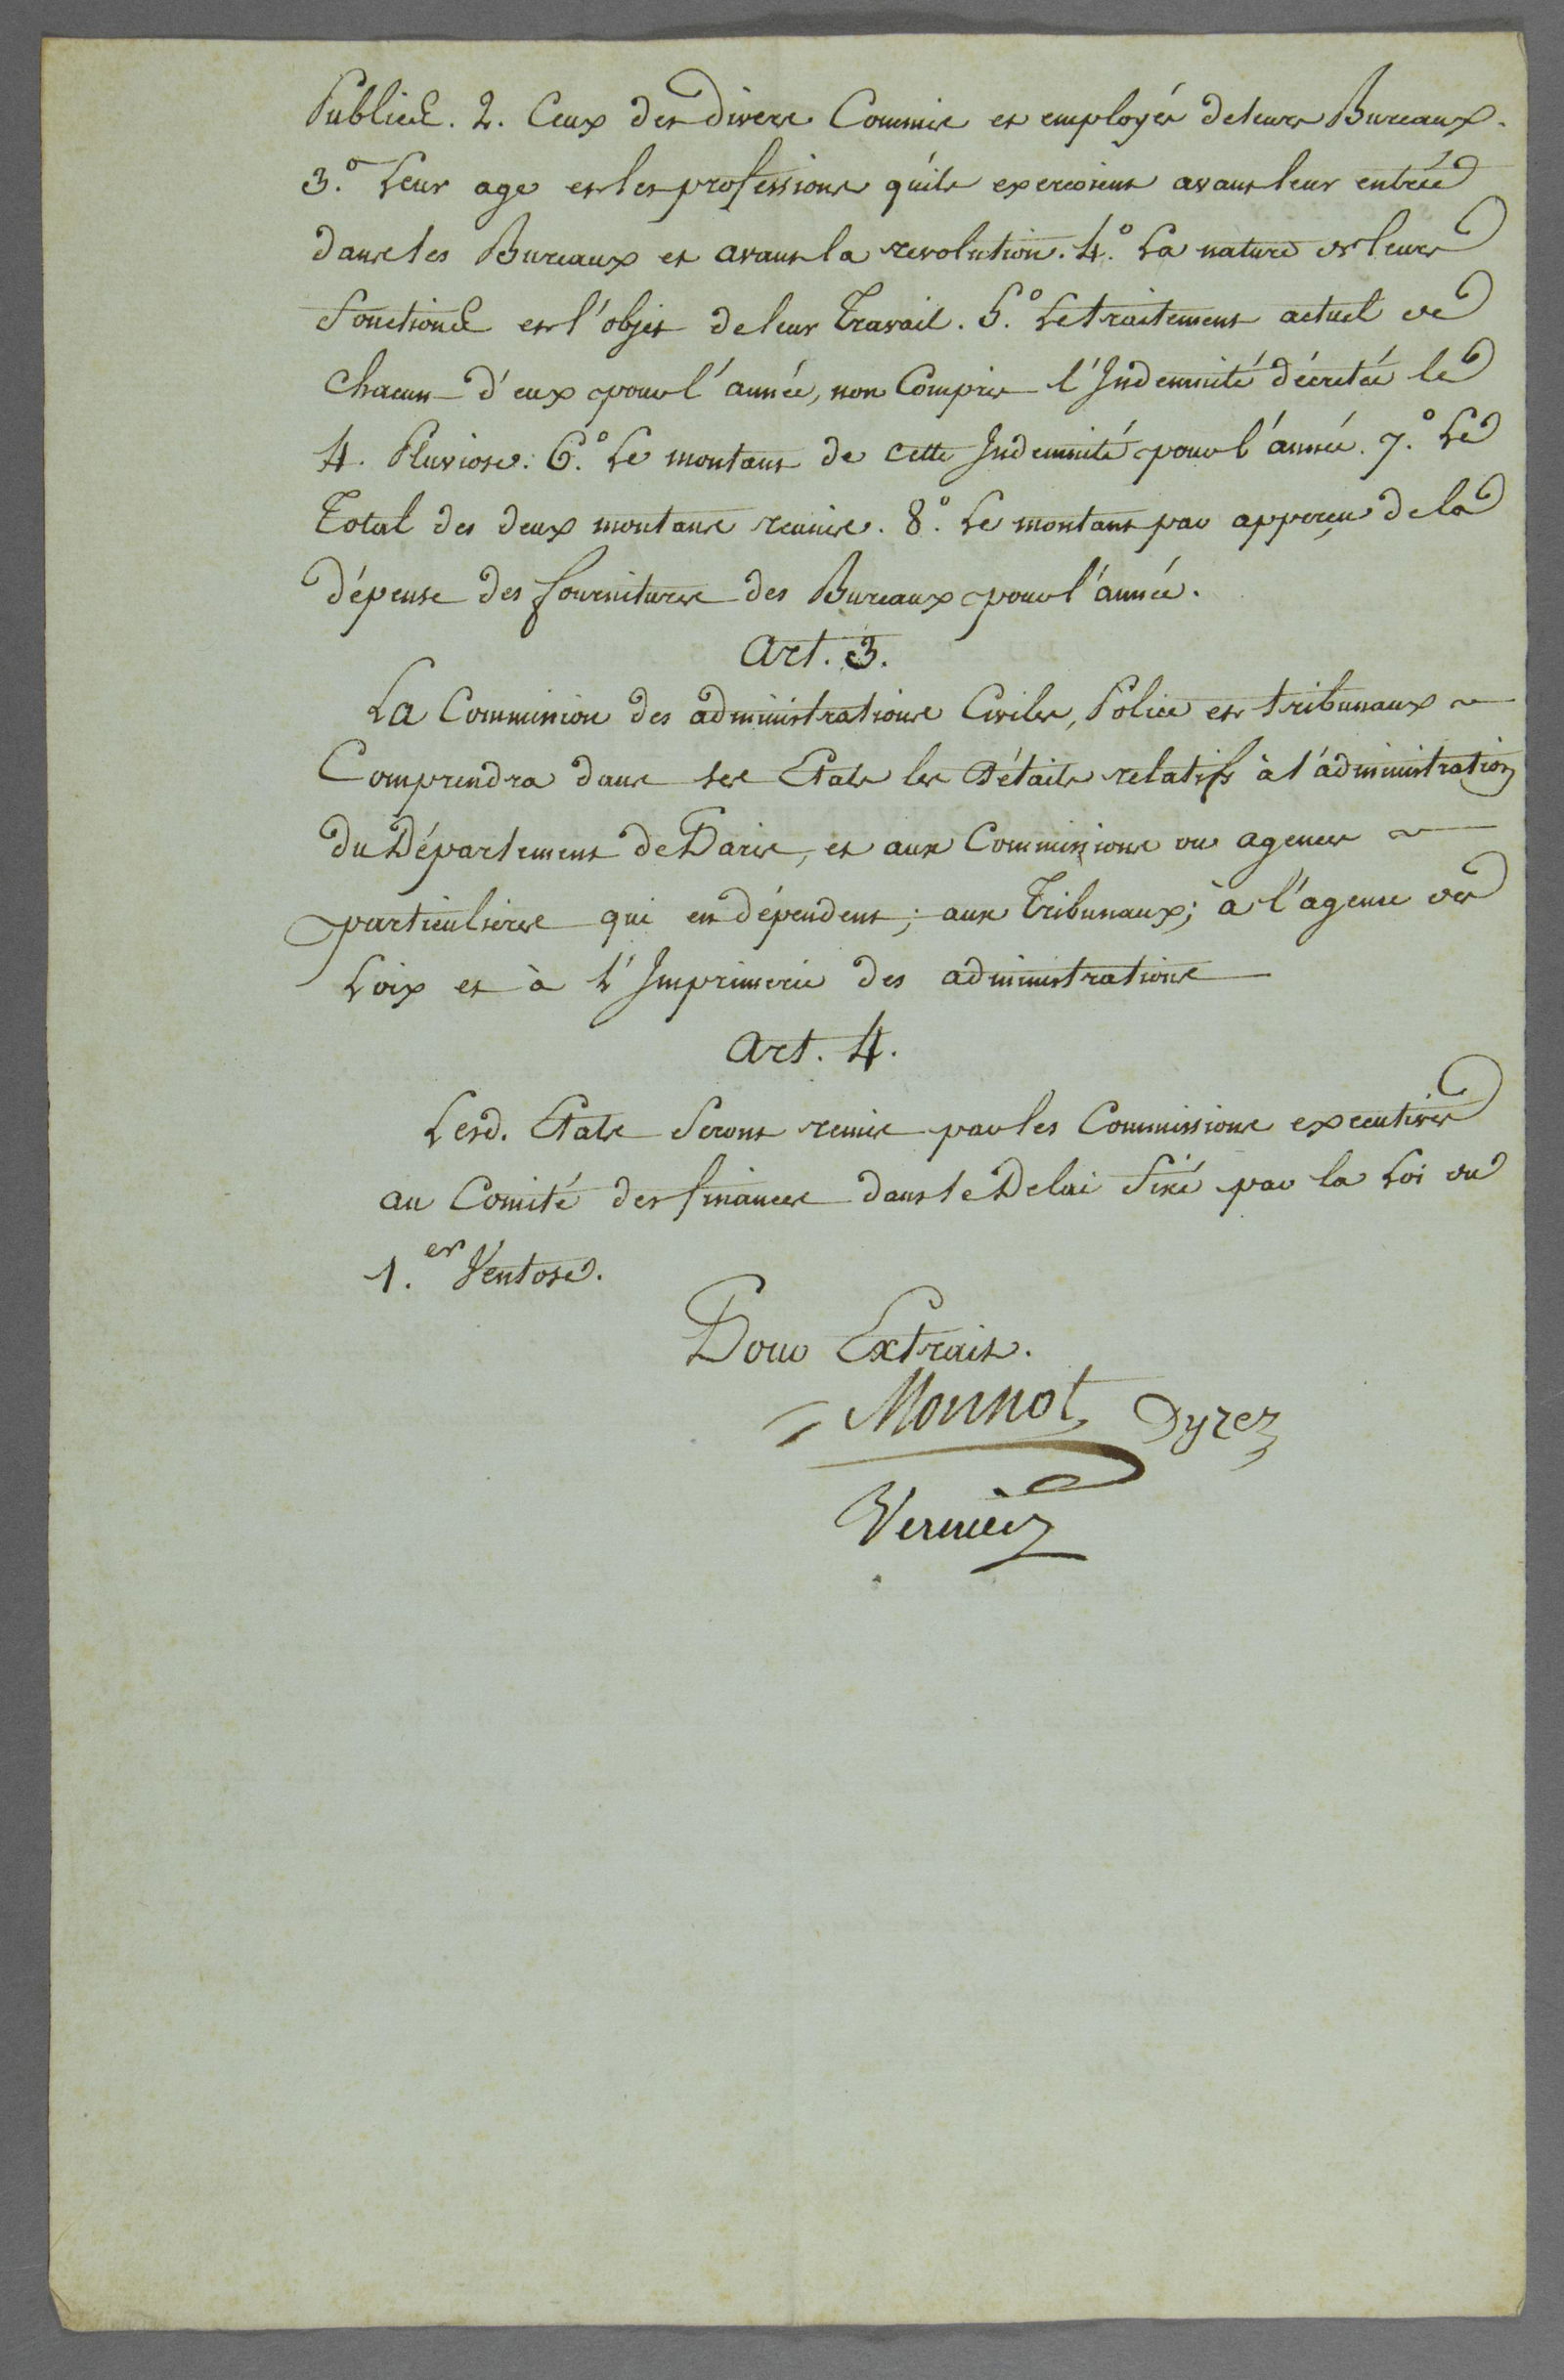 Publics. 2. Ceux des divers Commis et employés de leurs Bureaux.
3.º Leur age et les professions qu'ils exercoient avant leur entrée
dans les Bureaux et avant la revolution. 4.º La nature de leurs
fonctions et l'objet de leur Travail. 5.º Le traitement actuel de
chacun d'eux pour l'année, non Compris l'Indemnité décretée le
4. Pluviose. 6.º Le montant de cette Indemnité pour l'année. 7.º Le
Total des deux montans reunis. 8.º Le montant par apperçu de la
dépense des fournitures des Bureaux pour l'année.
Art. 3.
La Commission des administrations Civiles, Police et tribunaux ~
Comprendra dans ses Etats les Détails relatifs à l'administration
du Département de Paris, et aux Commissions ou agences ~
particulieres qui en dépendent; aux Tribunaux; à l'agence des
Loix et à l'Imprimerie des administrations
Art. 4.
Lesd. Etats seront remis par les Commissions executives
au Comité des finances dans le Delai fixé par la Loi du
1.er Ventose.
Pour Extrait.
Monnot Dyzez
Vernier